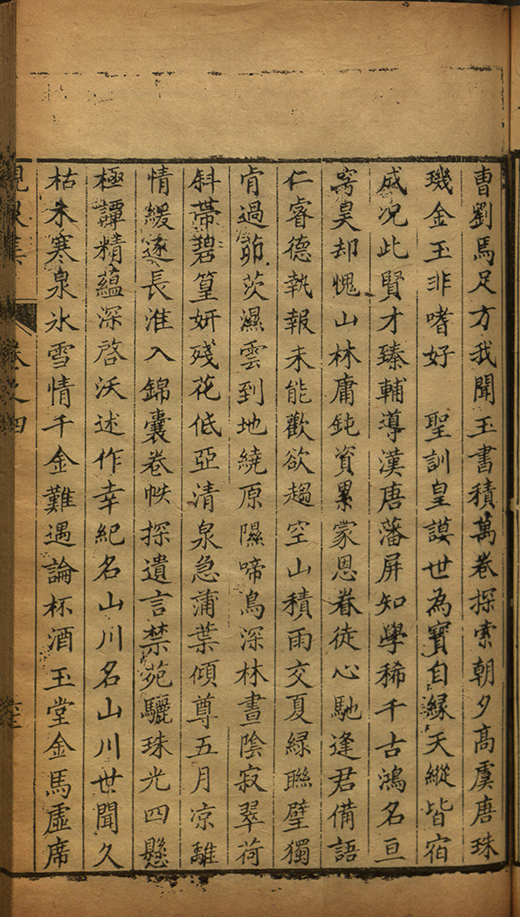 曹劉馬足方我聞玉書積萬卷探索朝夕高虞唐珠
璣金玉非嗜好　聖訓皇謨世為寶自緣天縱皆宿
成况此賢才臻輔導漢唐藩屏知學稀千古鴻名亘
穹昊却愧山林庸鈍資累蒙恩眷徒心馳逢君備語
仁睿德執報未能歡欲趨空山積雨交夏緑聮璧獨
肯過茆茨濕雲到地繞原隰啼鳥深林晝陰寂翠荷
斜帶碧篁妍殘花低亞清泉急蒲葉傾尊五月凉離
情緩逐長淮入錦囊卷帙探遺言禁苑驪珠光四懸
極譚精蘊深啓沃述作幸紀名山川名山川世聞久
枯木寒泉氷雪情千金難遇論杯酒玉堂金馬虛席
集　卷之四